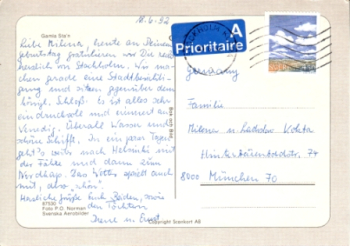 18.6.92
Gamla Stan
Liebe Milena, heute an Deinem
Geburtstag gratulieren wir Dir recht
herzlich von Stockholm. Wir ma-
chen gerade eine Stadtbesichti-
gung und sitzen gegenüber dem
königl. Schloß. Es ist alles sehr
eindrucksvoll und erinnert an
Venedig. Überall Wasser und
schöne Schiffe. In ein paar Tagen
geht's weiter nach Helsinki mit
der Fähre und dann zum
Nordkap. Das Wetter spielt auch
mit, also "schön".
Herzliche Grüße Euch Beiden, sowie
den Töchtern
Irene u. Ernst
A
Prioritaire
Germany
Familie
Milena u. Ladislav
8000 München 70
Foto P.O. Norman
Svenska Aerobilder
Copyright Scankort AB